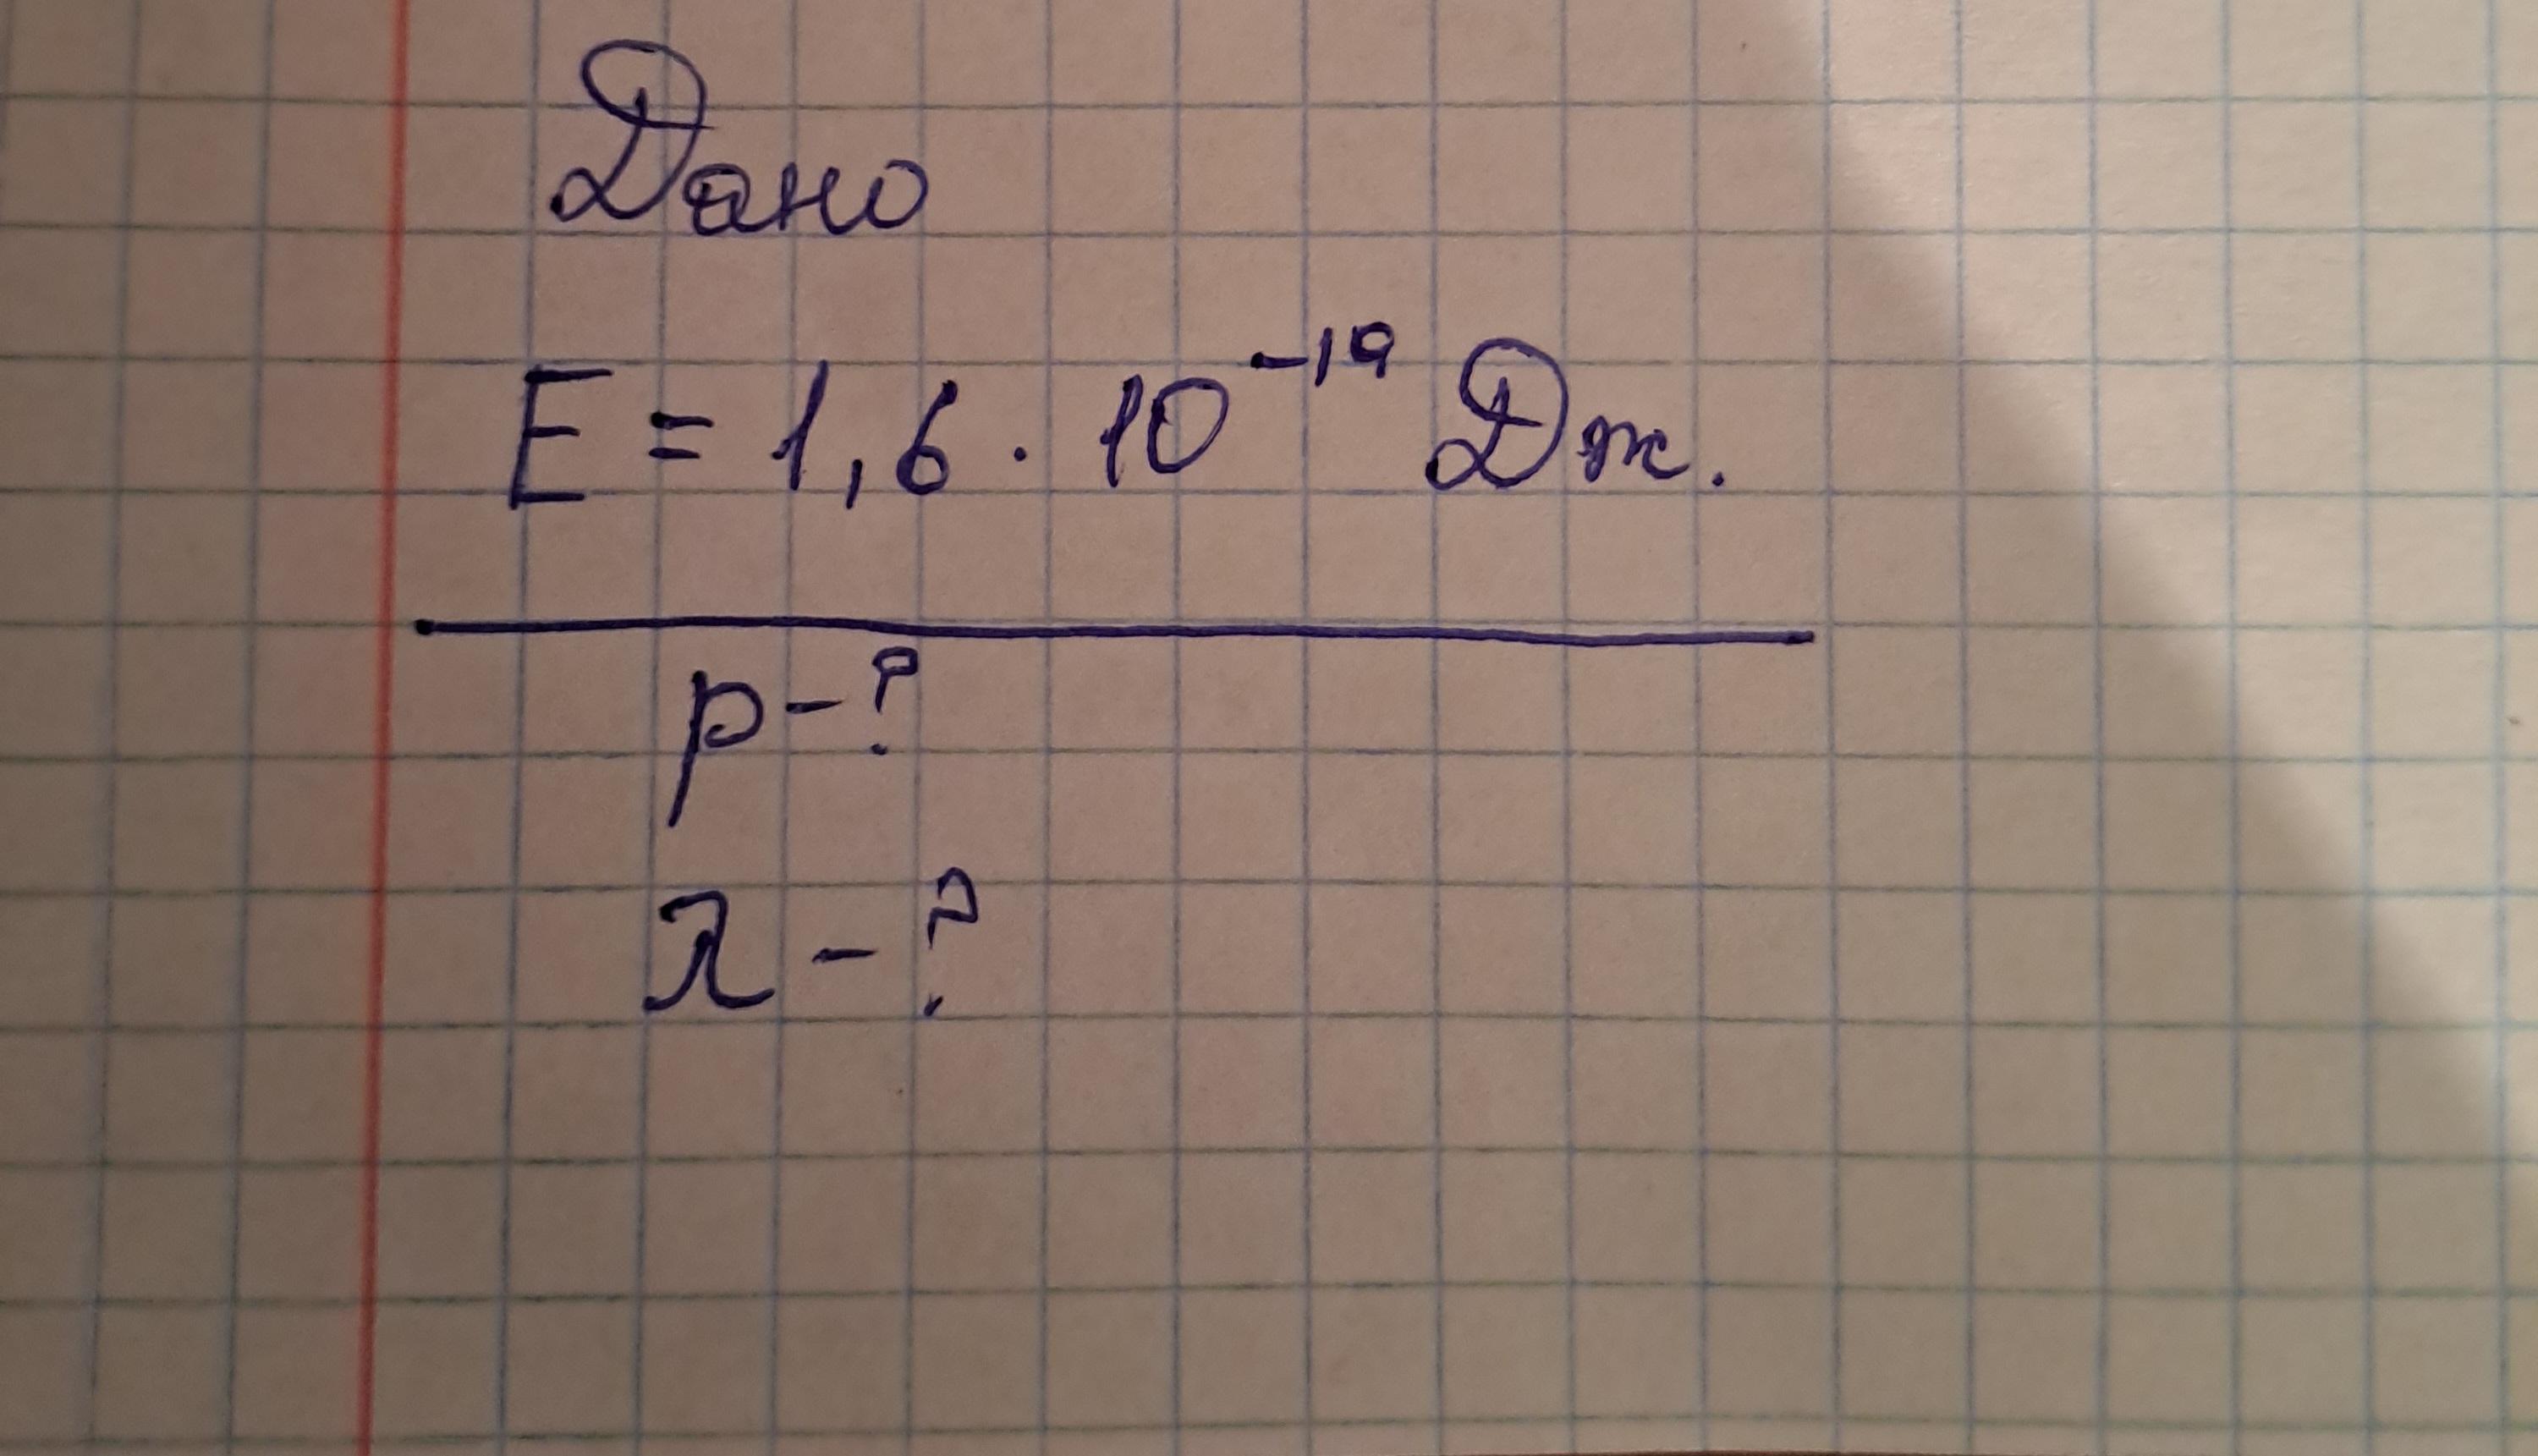 Дано
E = 1,6 · 10⁻¹⁹ Дж.
p - ?
λ - ?